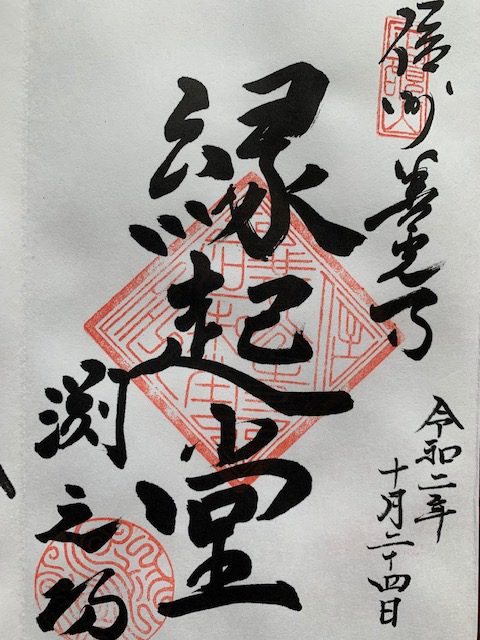 信州善光寺
令和二年
十月二十四日
縁起堂
渕之坊